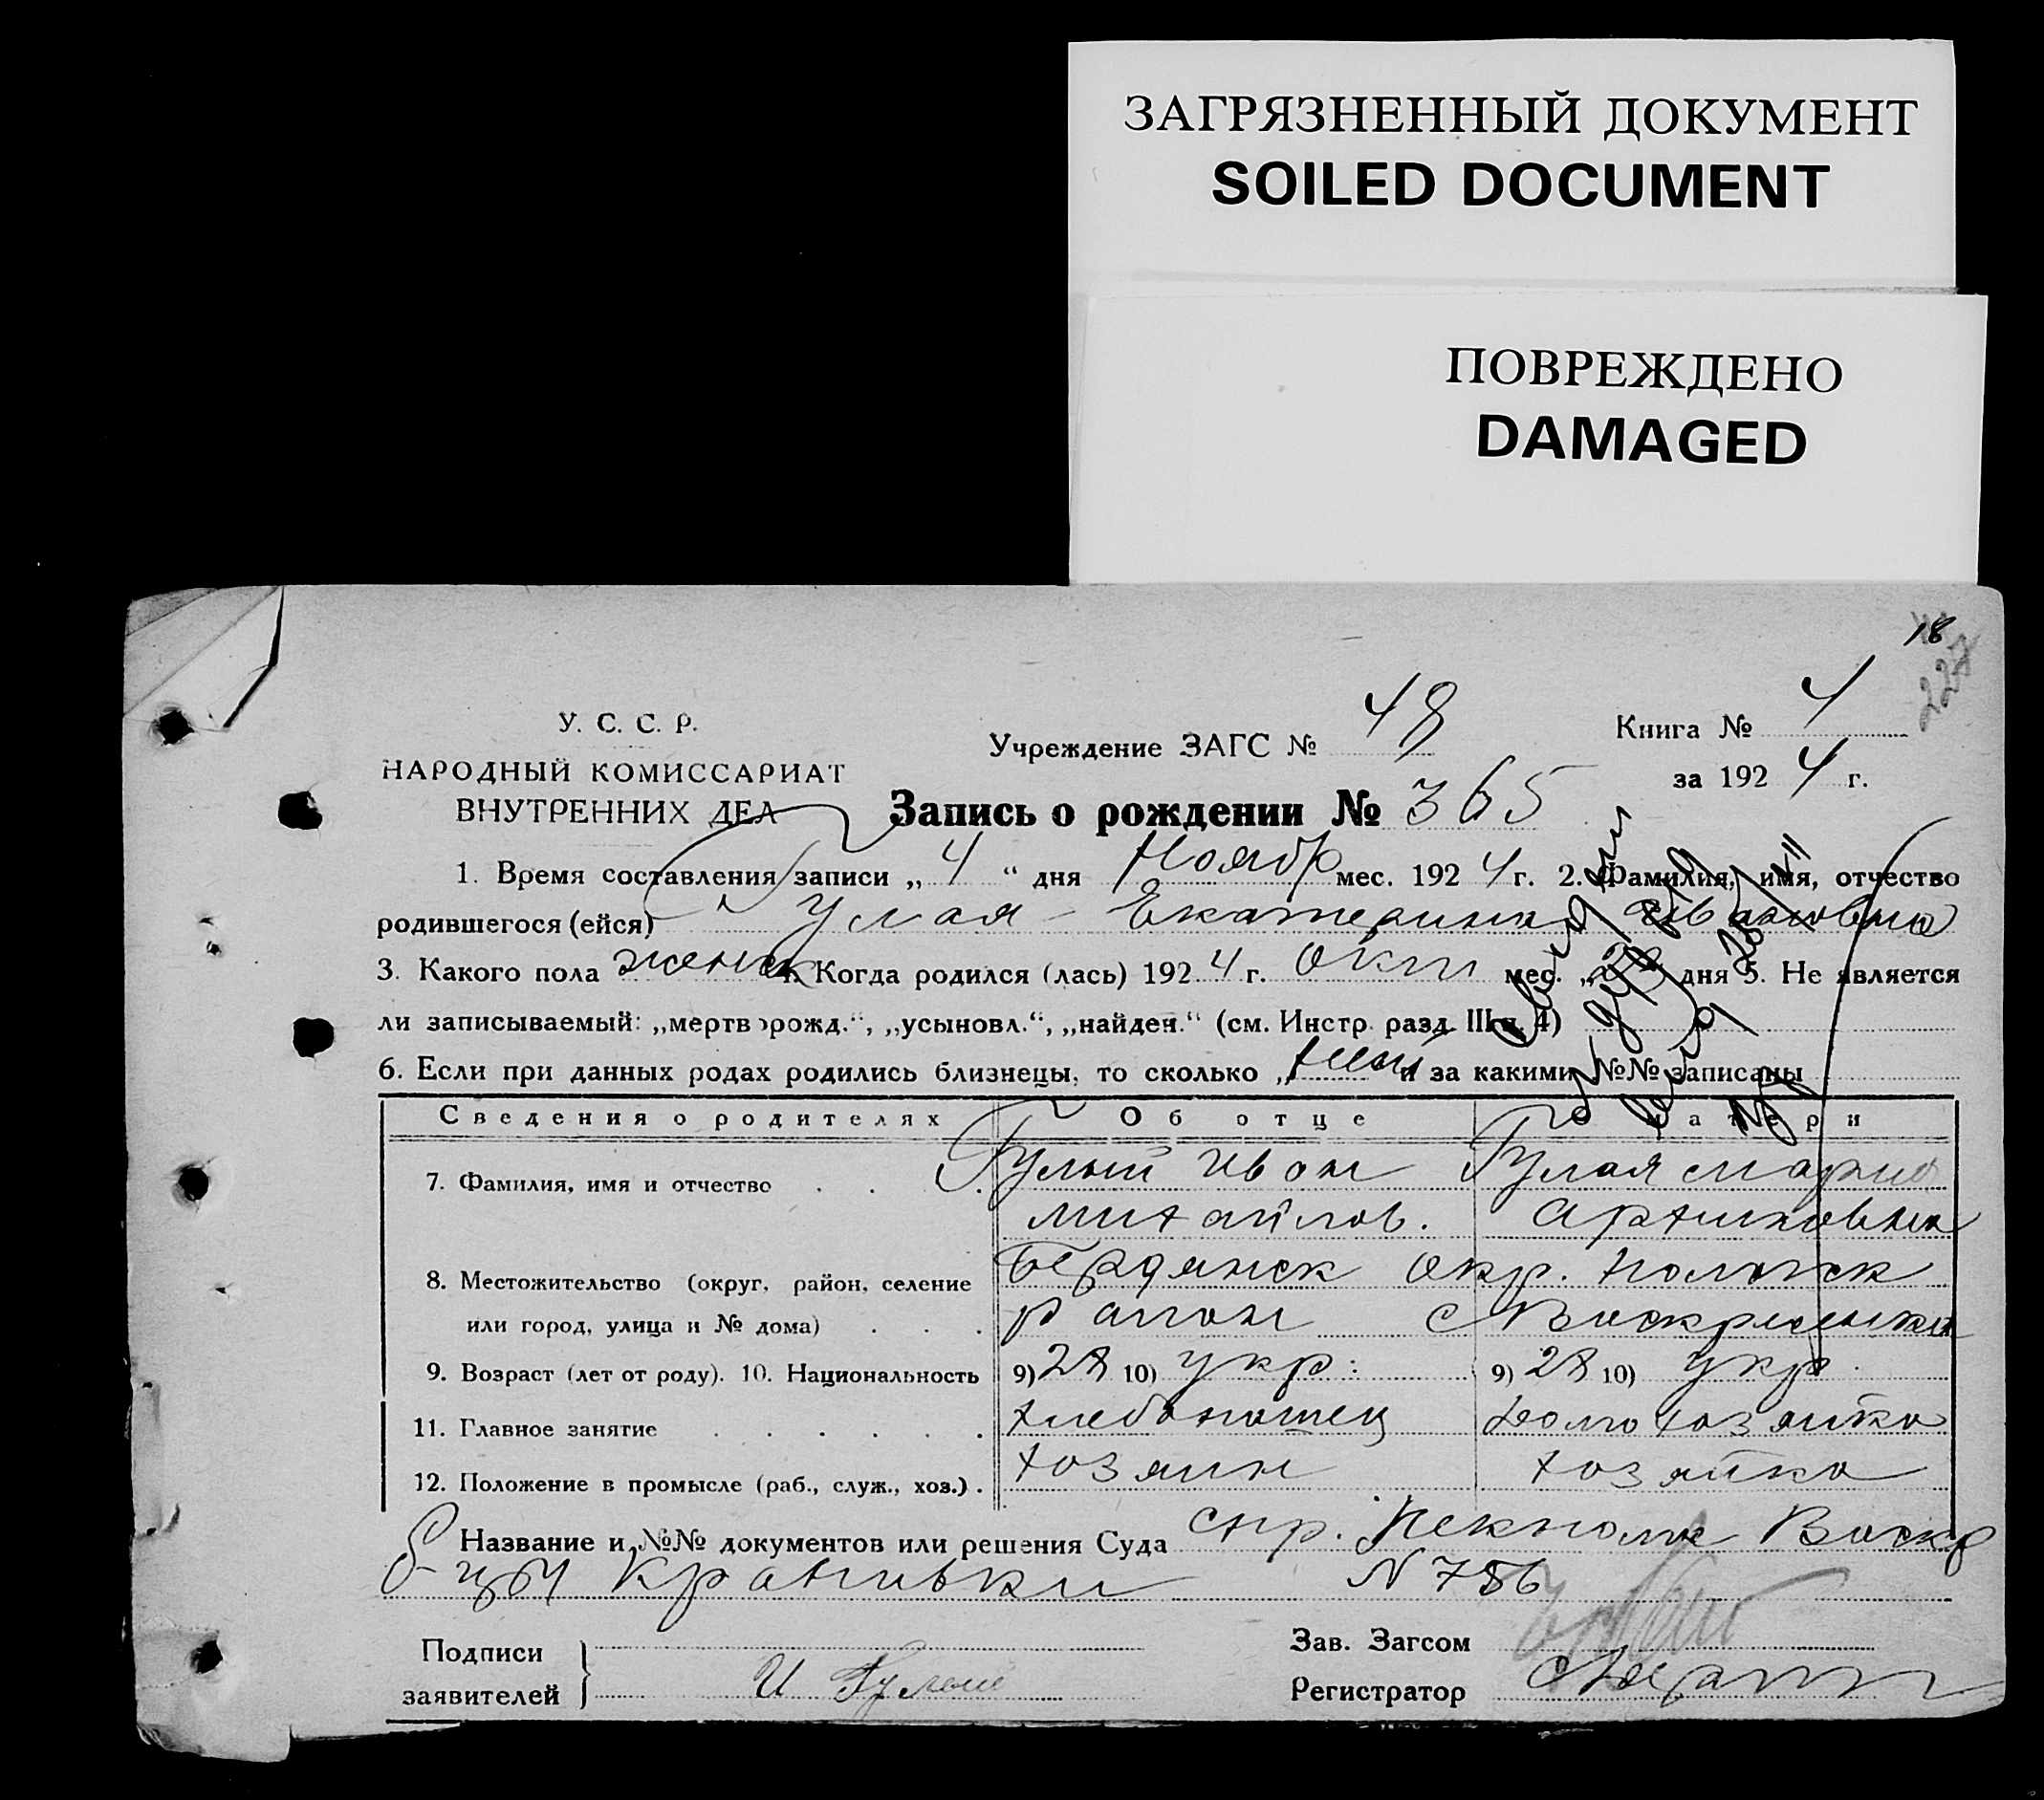 ЗАГРЯЗНЕННЫЙ ДОКУМЕНТ
SOILED DOCUMENT
ПОВРЕЖДЕНО
DAMAGED
18
227
У. С. С. Р.
НАРОДНЫЙ КОМИССАРИАТ
ВНУТРЕННИХ ДЕЛ
Учреждение ЗАГС № 48
Книга № 4
за 1924 г.
Запись о рождении № 365
1. Время составления записи „ 4 “ дня Ноябр мес. 1924 г. 2. Фамилия, имя, отчество
родившегося (ейся) Гулая Екатерина Ивановна
3. Какого пола женск 4. Когда родился (лась) 1924 г. Окт мес. „ дня 5. Не является
ли записываемый: „мертворожд.“, „усыновл.“, „найден.“ (см. Инстр. разд. III п. 4)
6. Если при данных родах родились близнецы, то сколько „ и за какими №№ записаны
Сведения о родителях Об отце О матери
7. Фамилия, имя и отчество Гулый Иван Гулая Мария
Михайлов.
8. Местожительство (округ, район, селение Бердянск Окр. Пологск
или город, улица и № дома) район с Воскресенка
9. Возраст (лет от роду). 10. Национальность 9) 28 10) укр. 9) 28 10) укр.
11. Главное занятие хлебопашец домохозяйка
12. Положение в промысле (раб., служ., хоз.) хозяин хозяйка
Название и №№ документов или решения Суда спр. Воскр
N 786
Подписи
заявителей И Гулый
Зав. Загсом
Регистратор